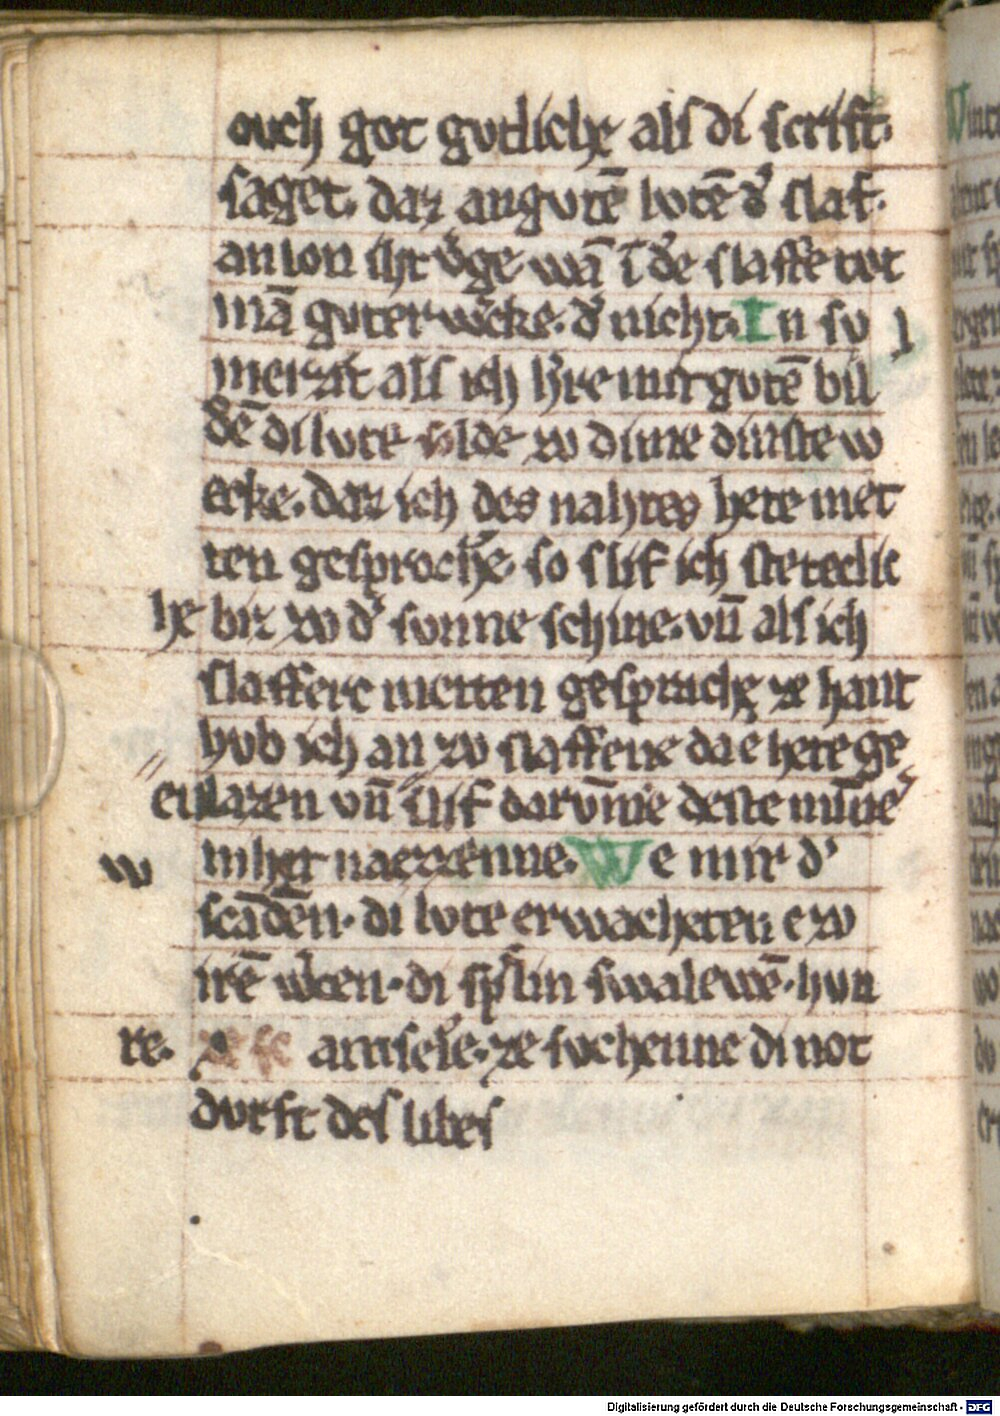 ouch got gutliche als di scrift.
saget. daz an gutē lutē d͛ slaf.
an lon iht v͛ge wā ī d͛e slaffe tvt
mā guter w͛cke. d͛ nicht. In su
l
merzit als ich h͛re mit gutē bil
dē di lute solde zv dime dinste w
ecke. daz ich des nahtes hete met
ten gesproch͛e. so slif ich stetechlic
he biz zv d͛ sunne schine. vn̄ als ich
slaffere metten gespriche ze hant
hvb ich an zv slaffene da e hete ge
en lazen vn̄ slif darvm̄e deste mīne
in her naezzenne. We mir d͛
w
scādēn. di lute erwacheten e zv
irē w͛cen. di sp͛lin swalewē. hun
re. amsel͛e. ze suchenne di not
durft des libes
Digitalisierung gefördert durch die Deutsche Forschungsgemeinschaft - DFG